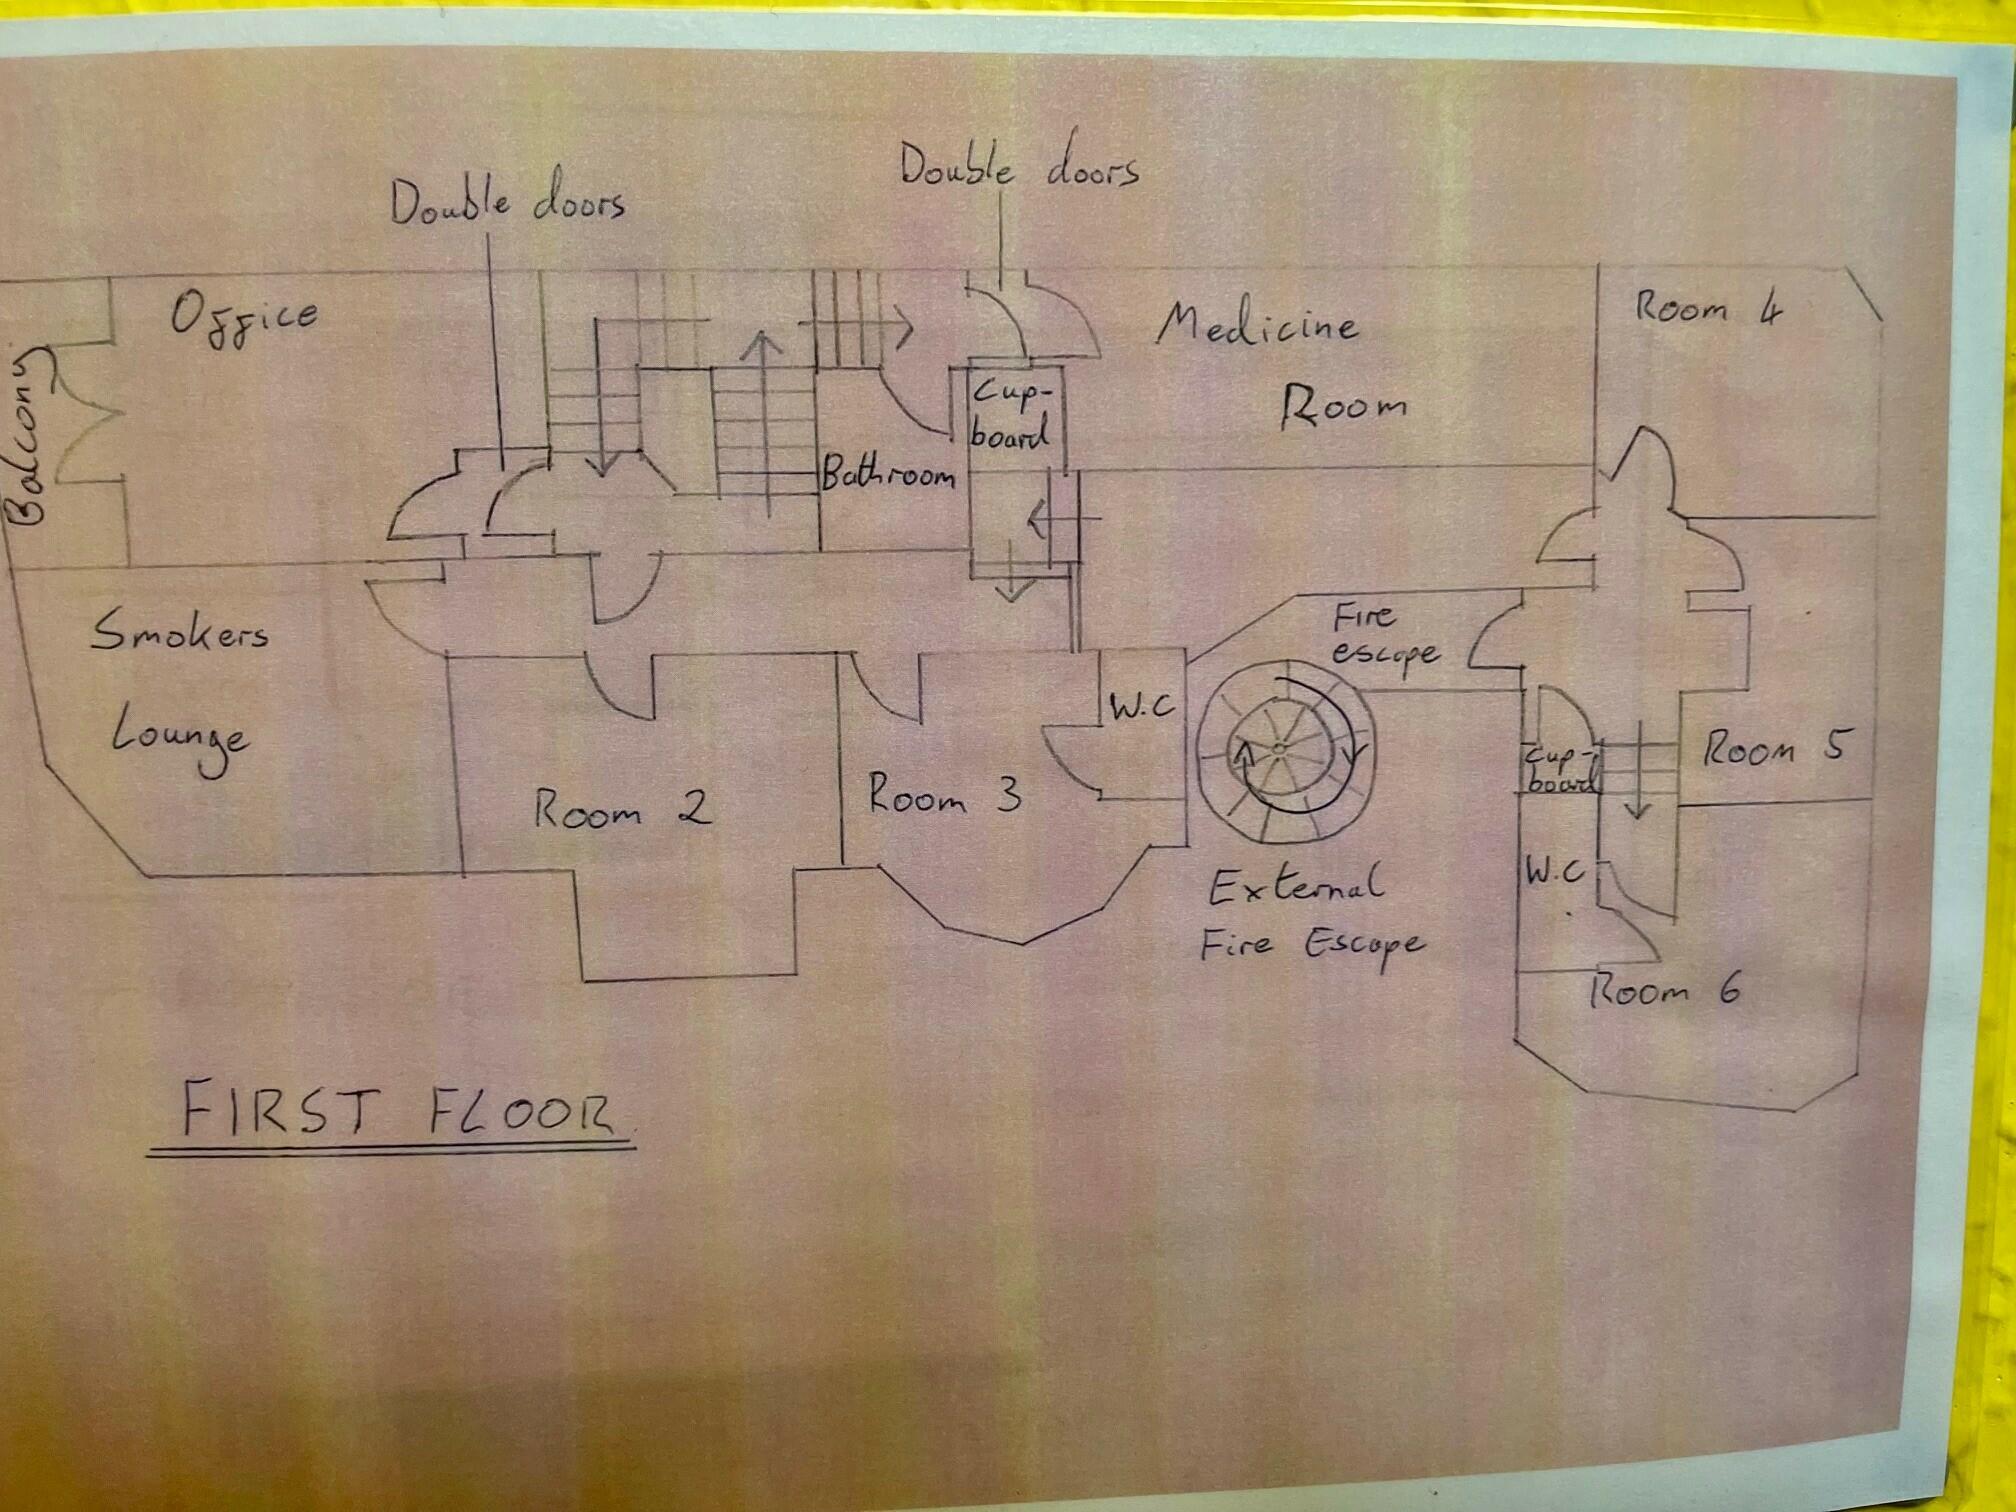 Double doors
Double doors
Office
Medicine
Room
Room 4
Balcony
Cup-
board
Bathroom
Smokers
Lounge
Fire
escape
W.C
Room 2
Room 3
Cup-
board
Room 5
W.C
External
Fire Escape
Room 6
FIRST FLOOR